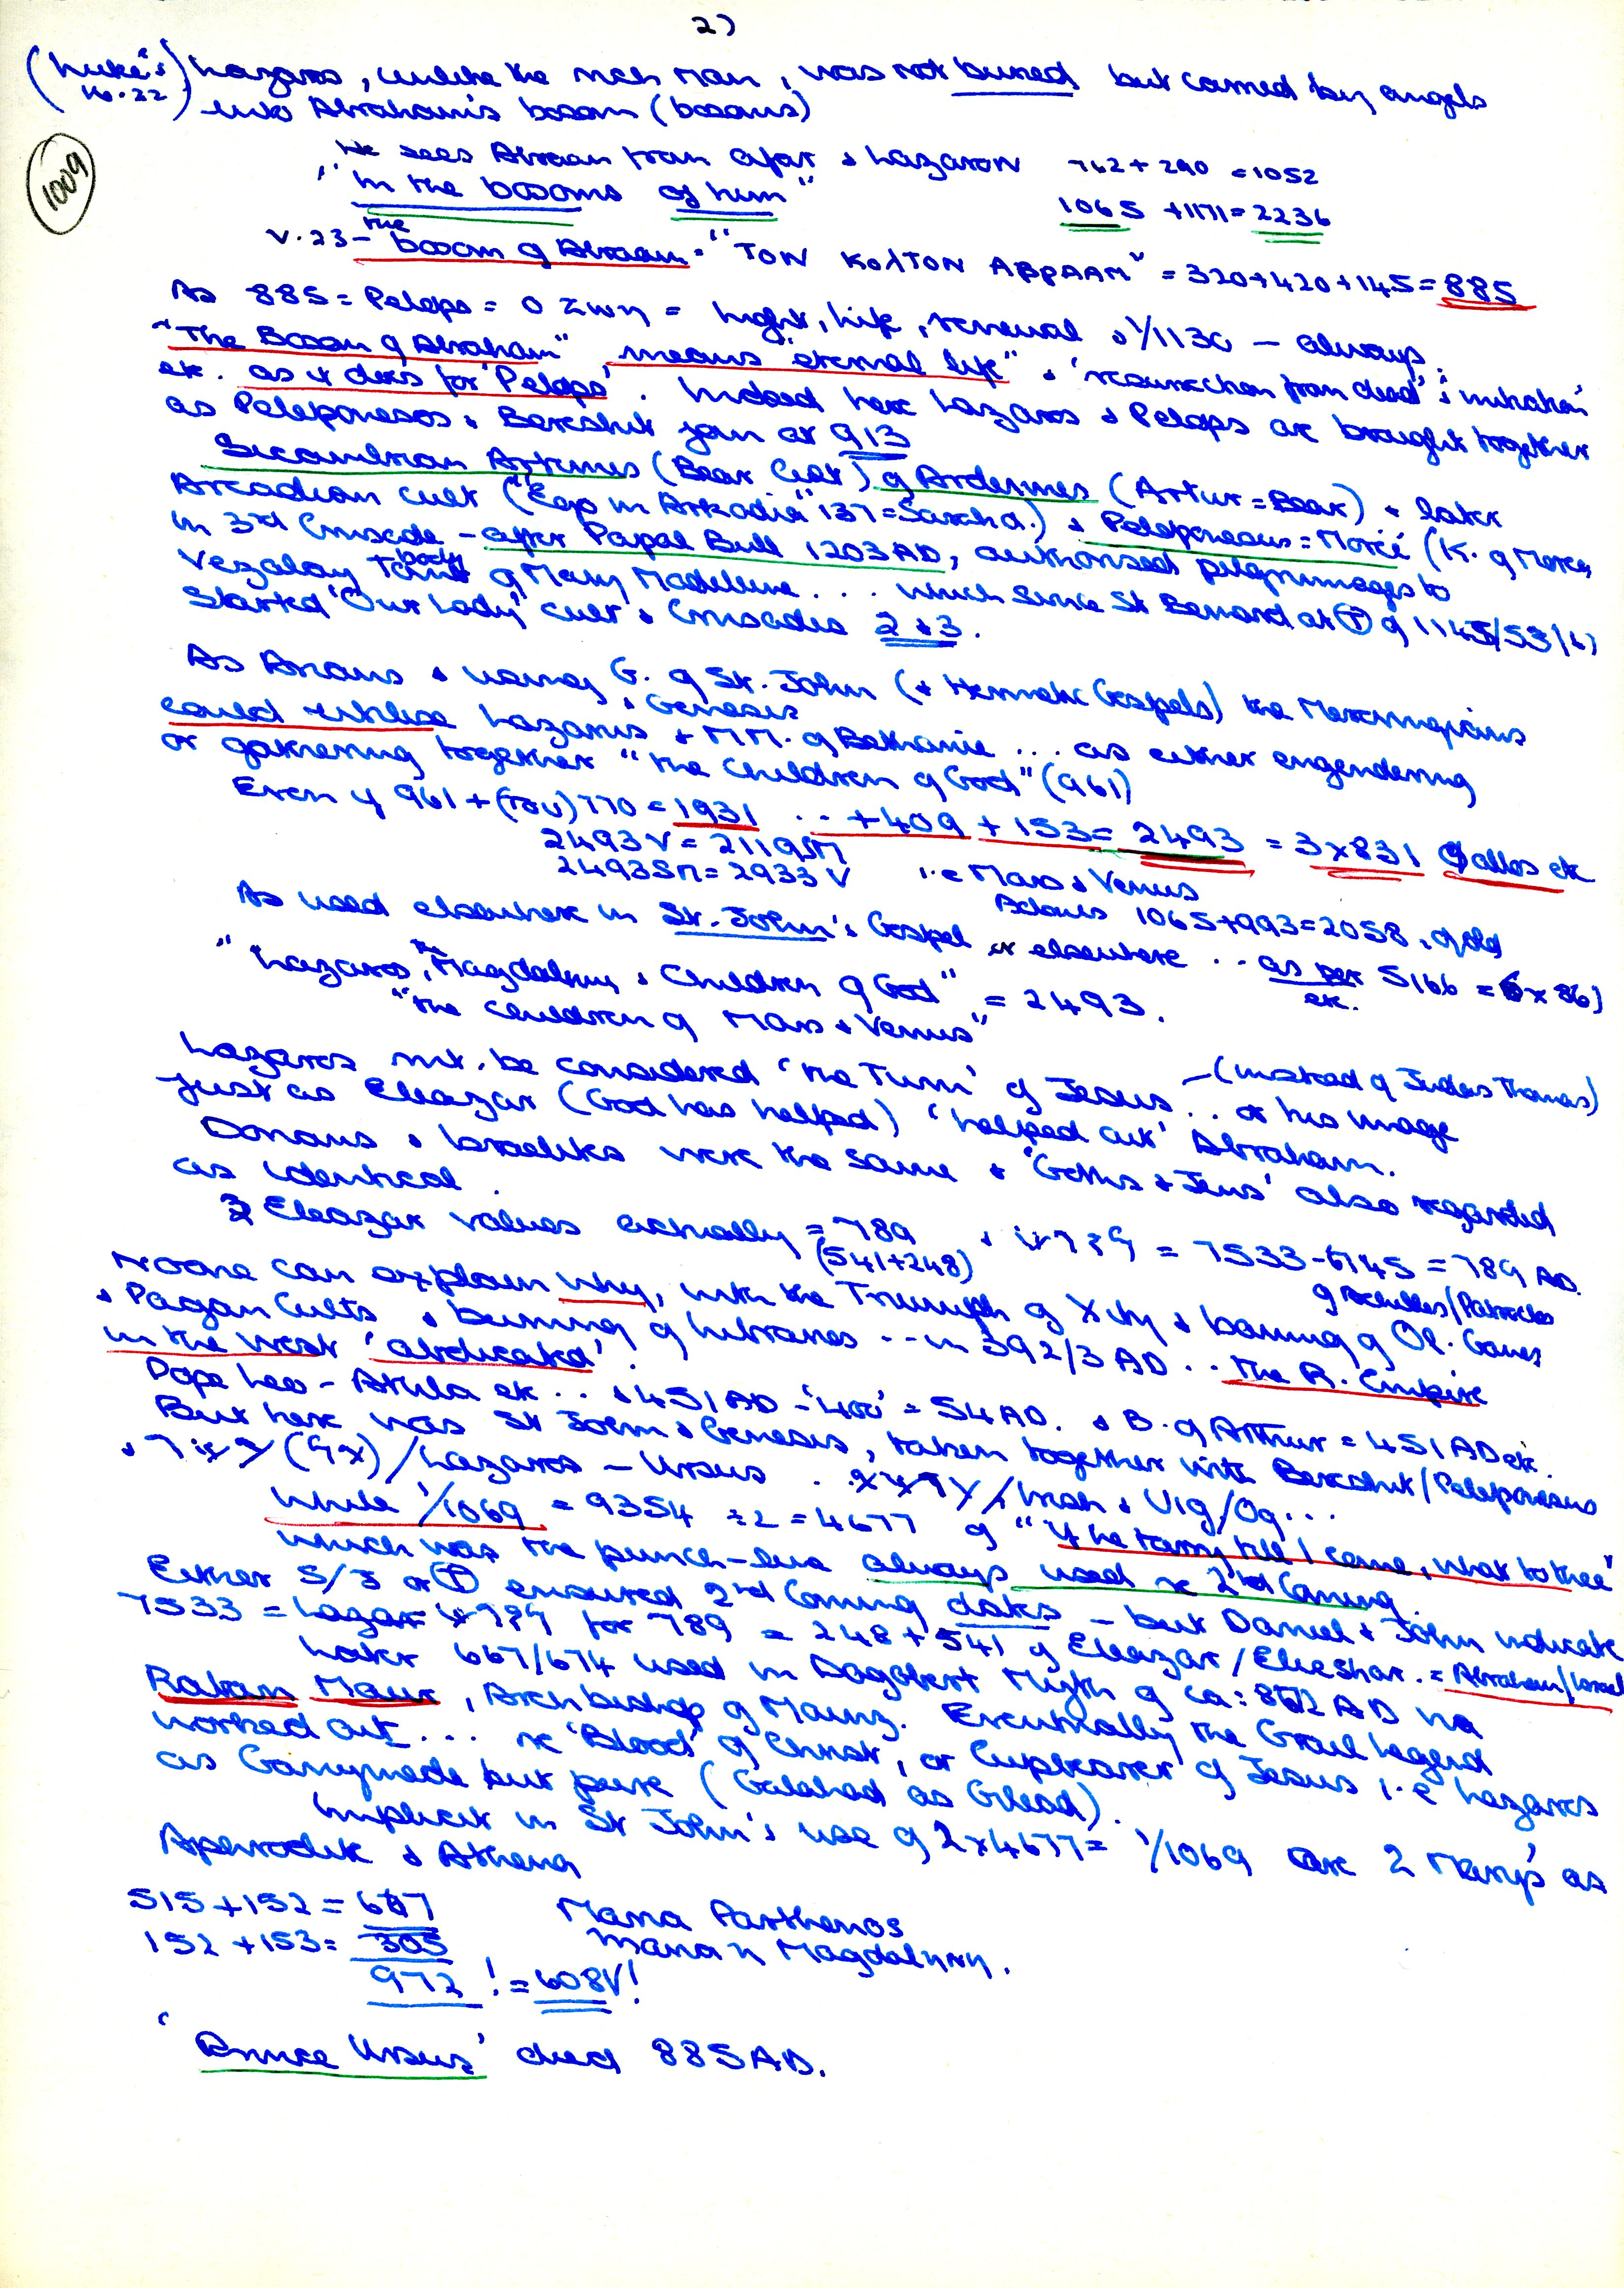 2)
(Luke's) Lazaros, unlike the rich man, was not buried but carried by angels
16.22 into Abraham's bosom (bosoms)
1009
He sees Abraam from afar & Lazaron 762 + 290 = 1052
"in the bosoms of him" 1065 + 1171 = 2236
v.23 - the bosom of Abraam = "TON KOλTON ABPAAM" = 320+420+145 = 885
As 885 = Pelops = O ZWH = Light, life, renewal & 1/1130 - always
"The Bosom of Abraham" means "eternal life" & 'resurrection from dead' & initiation
etc. as it does for 'Pelops'. Indeed here Lazaros & Pelops are brought together
as Peleponesos & Bereshit join at 913
Sicambrian Artemis (Bear Cult) of Ardennes (Artur = Bear) & later
Arcadian cult ("Ego in Arkadia" 137 = ) & Peleponesus = Moreé (K. of Morea,
in 3rd Crusade - after Papal Bull 1203 AD, authorised pilgrimages to
Vezalay Tomb + body of Mary Madeleine ... which since St Bernard at of 1145/53/
Started 'Our Lady' cult & Crusades 2 & 3.
As Arians & using G. of St. John (+ Hermetic Gospels) the Merovingians
could utilise Lazarus & Genesis + MM. of Bethanie ... as either engendering
or gathering together "the Children of God" (961)
Even if 961 + (Tou) 770 = 1931 .. + 409 + 153 = 2493 = 3 x 831 of allos etc
2493V = 2119SM
2493SM = 2933V i.e Mars & Venus
Adonis 1065+993=2058, of old
As used elsewhere in St. John's Gospel or elsewhere .. as per 5166 = 6 x 861
etc.
"Lazaros, the Magdalene & Children of God" = 2493.
"the children of Mars & Venus"
Lazaros mt. be considered 'the Twin' of Jesus .. or his image - (instead of Judas Thomas)
just as Eleazar (God has helped) 'helped out' Abraham.
Danaus & Israelites were the same & 'Goths & Jews' also regarded
as identical.
Eleazar values actually = 789 & = 7533 - 6745 = 789 AD.
(541+248) of Achilles/Patrocles
Noone can explain why, with the Triumph of Xity & banning of Ol. Games
& Pagan Cults & burning of libraries .. in 392/3 AD .. the R. Empire
in the West 'abdicated'!
Pope Leo - Attila etc .. & 451 AD - '400' = 54 AD. & B. of Arthur = 451 AD etc.
But here was St John & Genesis, taken together with Bereshit/Peleponesus
/Lazaros - Ursus .. & Uig/Og...
While 1/1069 = 9354 ÷ 2 = 4677 of "If he tarry till I come, what to thee"
which was the punch-line always used re 2nd Coming.
Either 5/3 or ensured 2nd Coming dates - but Daniel & John indicate
7533 = Lazar for 789 = 248 + 541 of Eleazar/Elieshar. = Abraham/Israel
Later 667/674 used in Dagobert Myth of ca: 872 AD via
Raban Maur, Archbishop of Mainz. Eventually the Grail Legend
worked out ... re 'Blood' of Christ, or Cupbearer of Jesus i.e Lazaros
as Ganymede but pure (Galahad as Gilead).
Implicit in St John's use of 2x4677 = 1/1069 are 2 Marys as
Aphrodite & Athena
515+152 = 667 Maria Parthenos
152+153 = 305 Maria η Magdalηnη.
972! = 608V!
'Prince Ursus' died 885 AD.